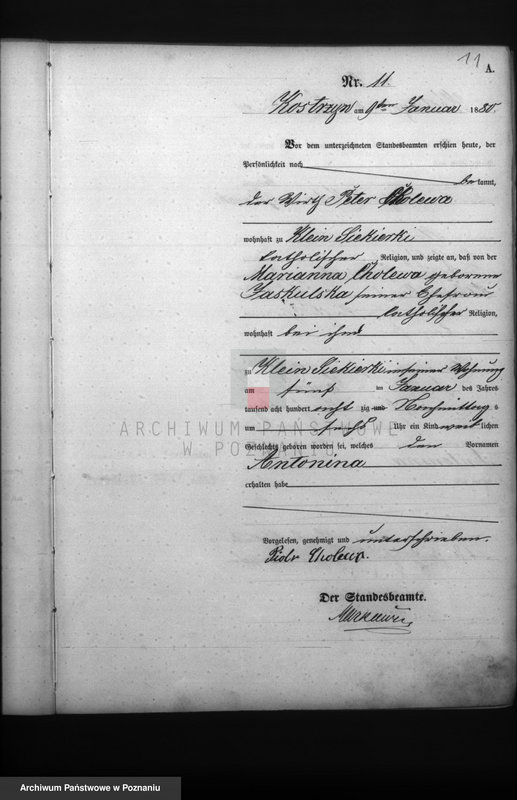 11
A.
Nr. 11.
Kostrzyn am 9ten Januar 1880.
Vor dem unterzeichneten Standesbeamten erschien heute, der
Persönlichkeit nach
bekannt,
der Wirth Peter Cholewa
wohnhaft zu Klein Siekierki
katholischer Religion, und zeigte an, daß von der
Marianna Cholewa geborene
Jaskulska seiner Ehefrau
katholischer Religion,
wohnhaft bei ihm
zu Klein Siekierki in seiner Wohnung
am fünf ten Januar des Jahres
tausend acht hundert achtzig und Nachmittags
um sechs Uhr ein Kind weiblichen
Geschlechts geboren worden sei, welches den Vornamen
Antonina
erhalten habe
Vorgelesen, genehmigt und unterschrieben.
Piotr Cholewa.
Der Standesbeamte.
ARCHIWUM PAŃSTWOWE
W POZNANIU
Archiwum Państwowe w Poznaniu